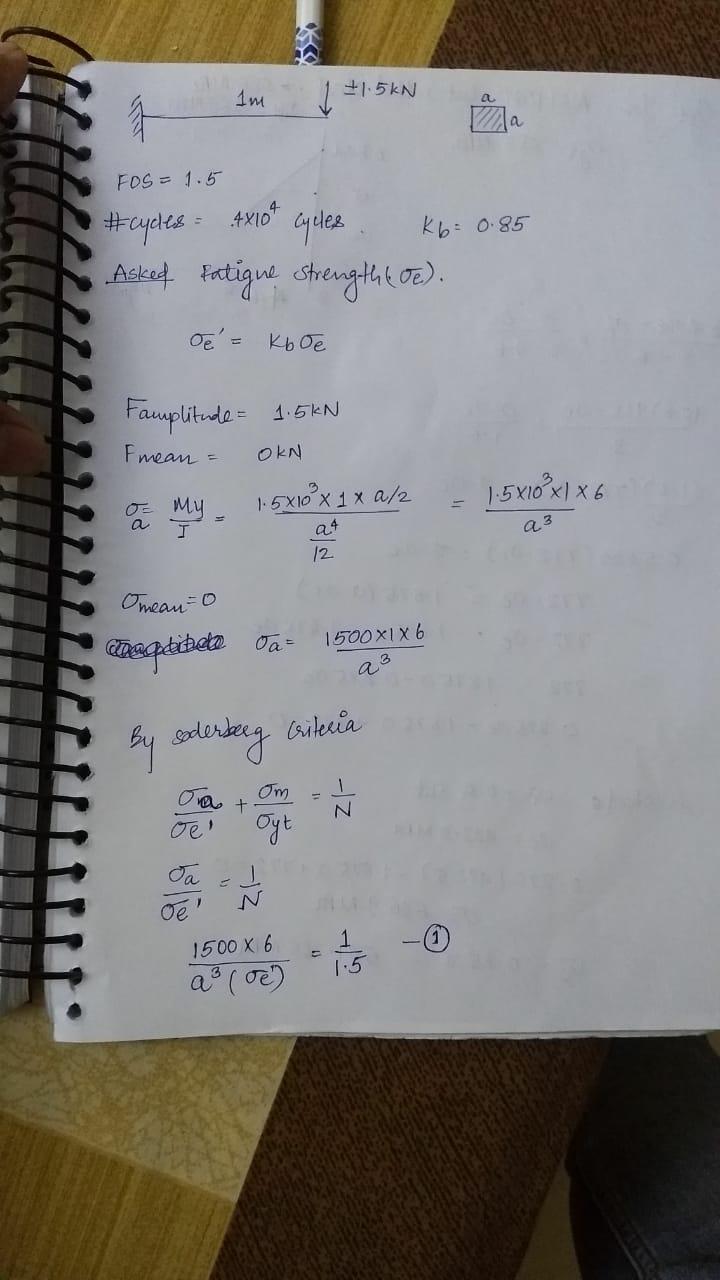 1m ↓ ±1.5kN a
a
FOS = 1.5
#cycles = 4×10⁴ cycles. Kb = 0.85
Asked Fatigue strength (σe).
σe' = Kb σe
Famplitude = 1.5kN
Fmean = 0kN
σa = My/I = (1.5×10³ × 1 × a/2)/(a⁴/12) = (1.5×10³×1×6)/a³
σmean = 0
σa = (1500×1×6)/a³
By soderberg Criteria
σa/σe' + σm/σyt = 1/N
σa/σe' = 1/N
(1500×6)/(a³(σe')) = 1/1.5 —①